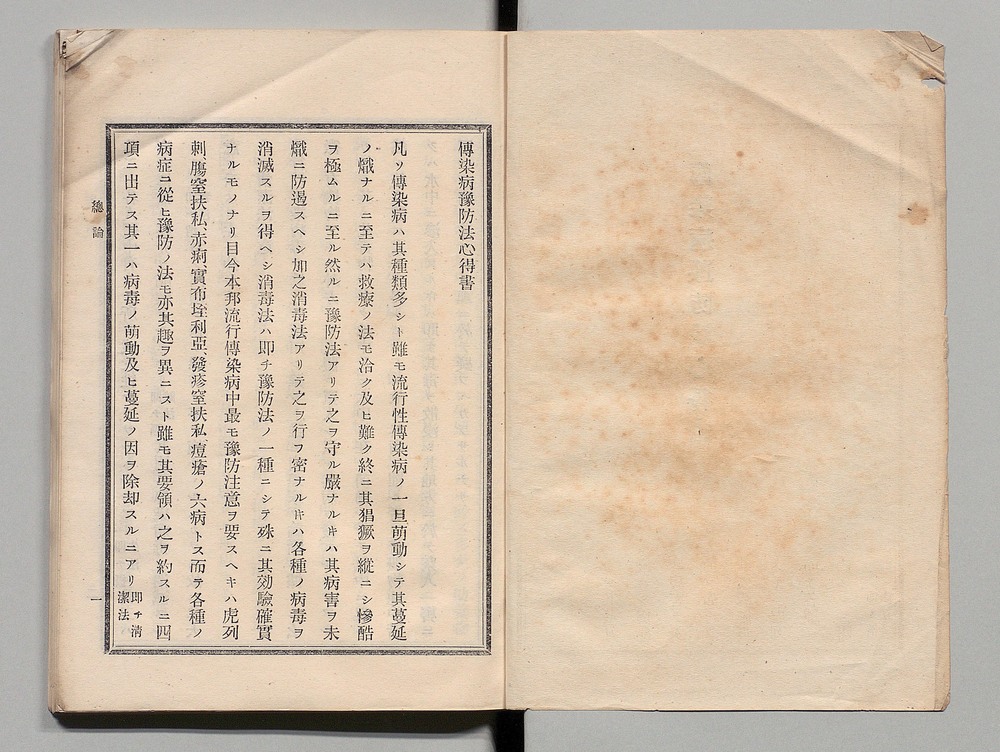 傳染病豫防法心得書
凡ソ傳染病ハ其種類多シト雖モ流行性傳染病ノ一旦萌動シテ其蔓延
ノ熾ナルニ至テハ救療ノ法モ洽ク及ヒ難ク終ニ其猖獗ヲ縱ニシ慘酷
ヲ極ムルニ至ル然ルニ豫防法アリテ之ヲ守ル嚴ナルキハ其病害ヲ未
熾ニ防遏スヘシ加之消毒法アリテ之ヲ行フ密ナルキハ各種ノ病毒ヲ
消滅スルヲ得ヘシ消毒法ハ即チ豫防法ノ一種ニシテ殊ニ其効驗確實
ナルモノナリ目今本邦流行傳染病中最モ豫防注意ヲ要スヘキハ虎列
刺、膓窒扶私、赤痢、實布垤利亞、發疹窒扶私、痘瘡ノ六病トス而テ各種ノ
病症ニ從ヒ豫防ノ法モ亦其趣ヲ異ニスト雖モ其要領ハ之ヲ約スルニ四
項ニ出テス其一ハ病毒ノ萌動及ヒ蔓延ノ因ヲ除却スルニアリ
即チ清
潔法ハ
總論
一